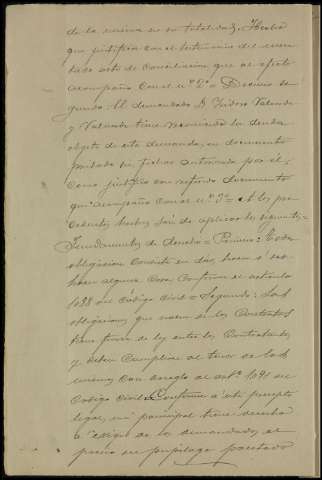 de la misma en su totalidad. Hecho
que justifica con el testimonio del
acto de conciliación que al efecto
acompaño con el nº 2º = Décimo se-
gundo: El demandado D. Isidoro Valende
y Valende tiene reconocida la deuda
objeto de esta demanda, en documento
privado sin fecha autorizado por él,
como justifica con referido documento
que acompaño con el nº 3º = A los pre-
cedentes hechos son de aplicar los siguientes =
Fundamentos de derecho = Primero: Toda
obligación consiste en dar, hacer ó no
hacer alguna cosa, conforme el artículo
1088 del Código Civil = Segundo: Las
obligaciones que nacen de los contratos
tiene fuerza de ley entre los contratantes
y deben cumplirse al tenor de los
mismos, con arreglo al artº 1091 del
Código Civil. Conforme á este precepto
legal, mi principal tiene derecho
a exigir de los demandados, el
precio del pupilaje pactado